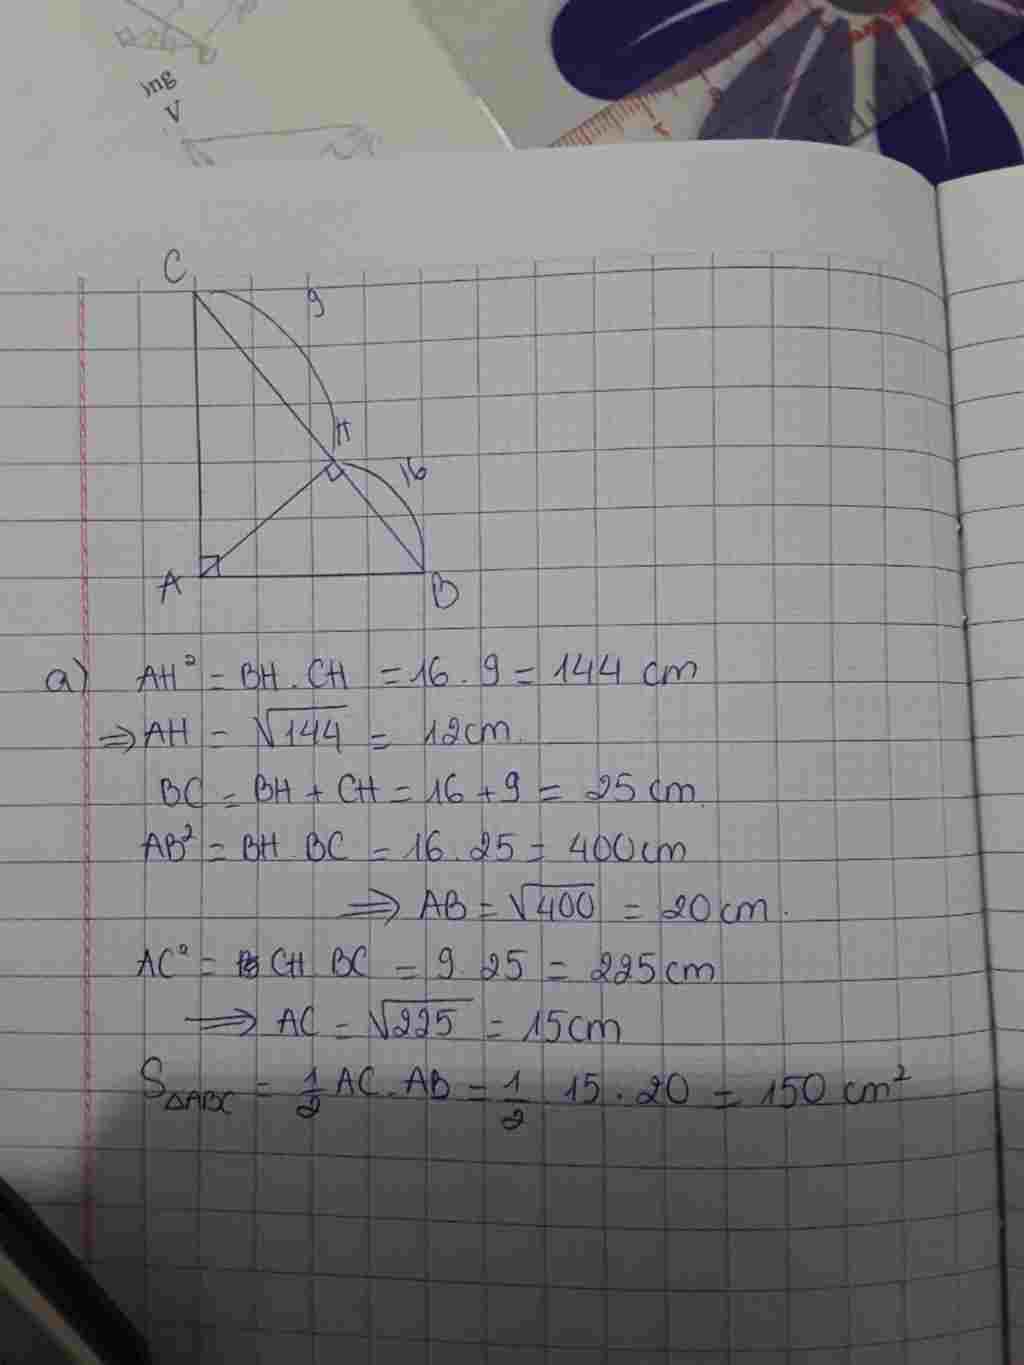 ing
V
C
9
H
16
A
B
a) AH² = BH . CH = 16 . 9 = 144 cm
⇒ AH = √144 = 12cm.
BC = BH + CH = 16 + 9 = 25 cm.
AB² = BH BC = 16 . 25 = 400cm
⇒ AB = √400 = 20cm.
AC² = CH BC = 9. 25 = 225cm
⇒ AC = √225 = 15cm
S△ABC = 1/2 AC . AB = 1/2 15 . 20 = 150 cm²